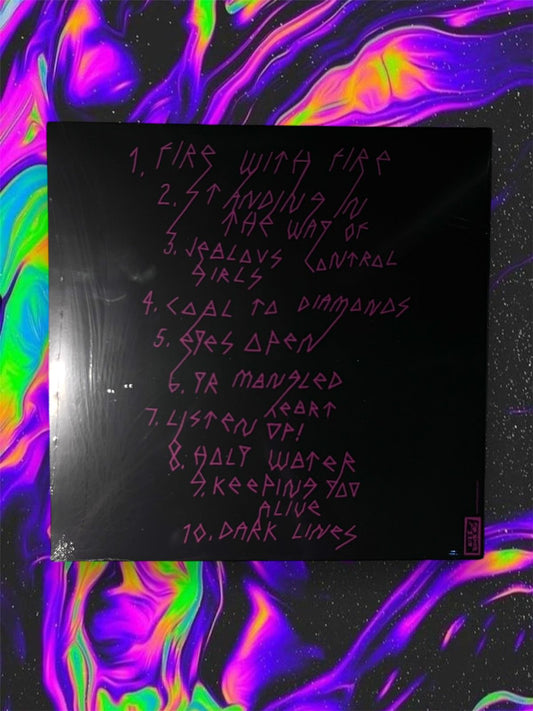 1. FIRE WITH FIRE
2. STANDING IN
THE WAY OF
CONTROL
3. JEALOUS
GIRLS
4. COAL TO DIAMONDS
5. EYES OPEN
6. YR MANGLED
HEART
7. LISTEN UP!
8. HOLY WATER
9. KEEPING YOU
ALIVE
10. DARK LINES